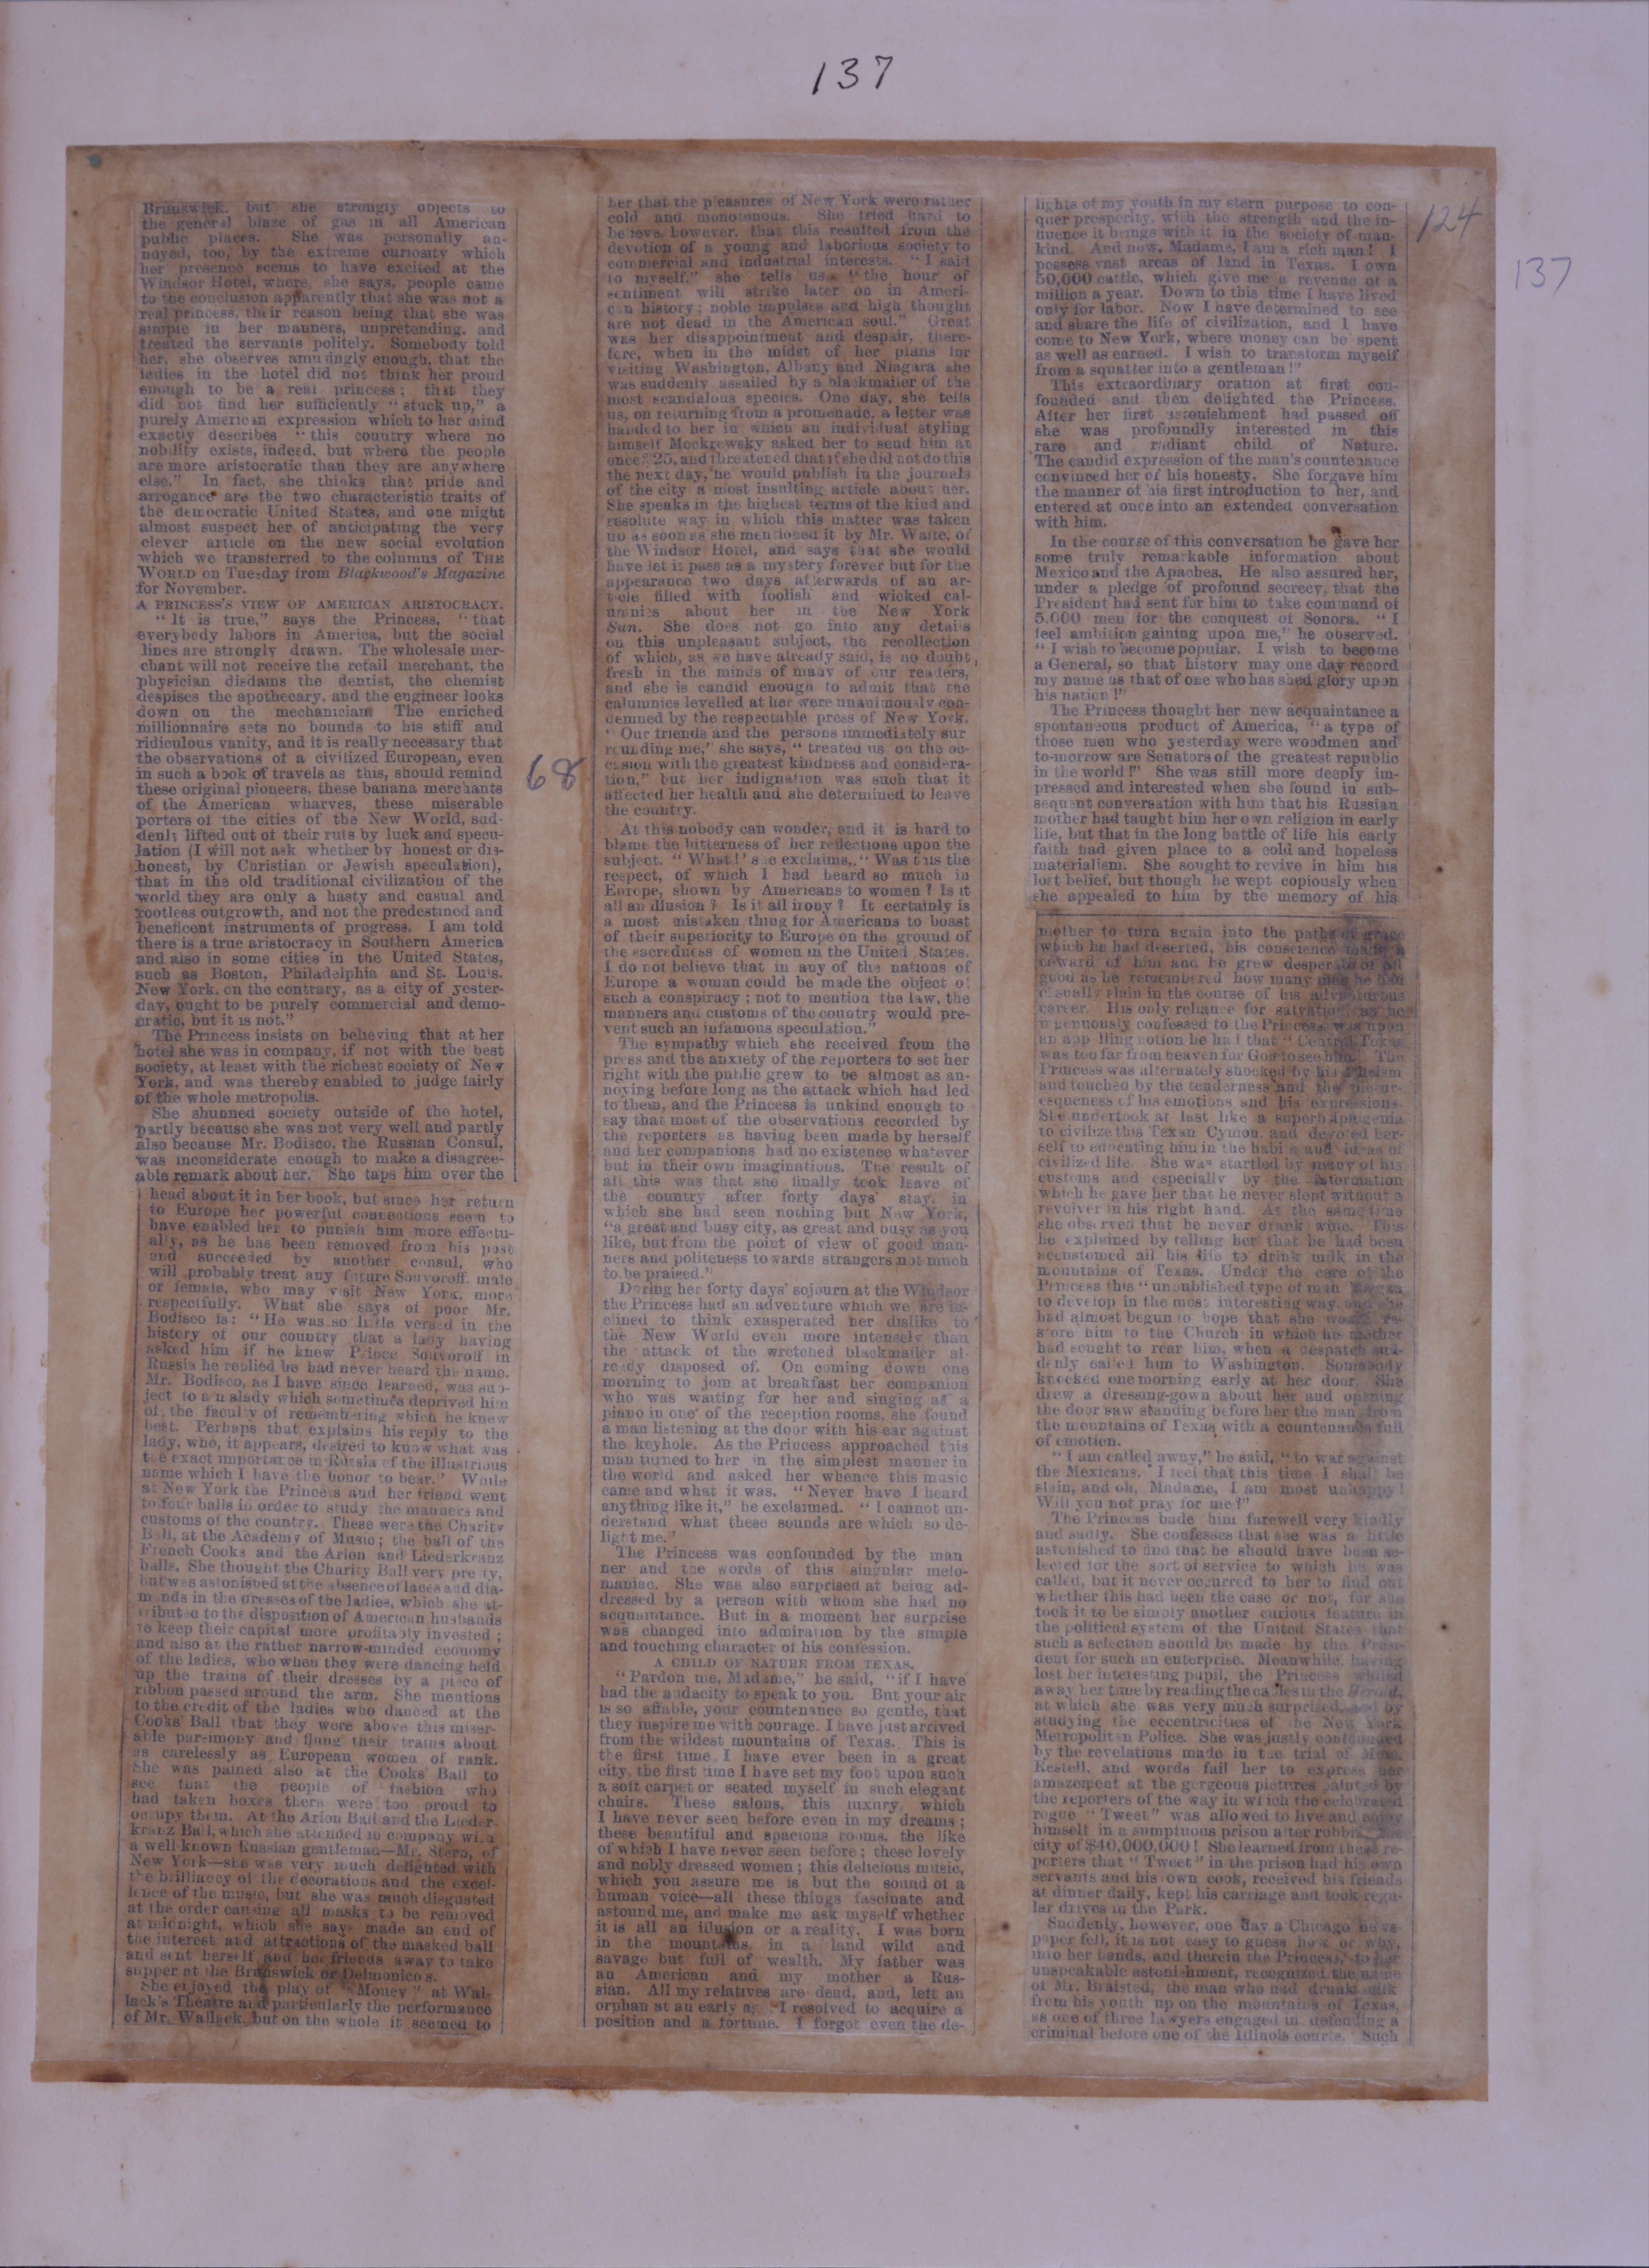 137
124
137
68
Brunswick. but she strongly objects to
the general blaze of gas in all American
public places. She was personally an-
noyed, too, by the extreme curiosity which
her presence seems to have excited at the
Windsor Hotel, where, she says, people came
to the conclusion apparently that she was not a
real princess, their reason being that she was
simple in her manners, unpretending, and
treated the servants politely. Somebody told
her, she observes amusingly enough, that the
ladies in the hotel did not think her proud
enough to be a real princess; that they
did not find her sufficiently "stuck up," a
purely American expression which to her mind
exactly describes "this country where no
nobility exists, indeed, but where the people
are more aristocratic than they are anywhere
else." In fact, she thinks that pride and
arrogance are the two characteristic traits of
the democratic United States, and one might
almost suspect her of anticipating the very
clever article on the new social evolution
which we transferred to the columns of THE
WORLD on Tuesday from Blackwood's Magazine
for November.
A PRINCESS'S VIEW OF AMERICAN ARISTOCRACY.
"It is true," says the Princess, "that
everybody labors in America, but the social
lines are strongly drawn. The wholesale mer-
chant will not receive the retail merchant, the
physician disdains the dentist, the chemist
despises the apothecary, and the engineer looks
down on the mechanician. The enriched
millionnaire sets no bounds to his stiff and
ridiculous vanity, and it is really necessary that
the observations of a civilized European, even
in such a book of travels as this, should remind
these original pioneers, these banana merchants
of the American wharves, these miserable
porters of the cities of the New World, sud-
denly lifted out of their ruts by luck and specu-
lation (I will not ask whether by honest or dis-
honest, by Christian or Jewish speculation),
that in the old traditional civilization of the
world they are only a hasty and casual and
rootless outgrowth, and not the predestined and
beneficent instruments of progress. I am told
there is a true aristocracy in Southern America
and also in some cities in the United States,
such as Boston, Philadelphia and St. Louis.
New York, on the contrary, as a city of yester-
day, ought to be purely commercial and demo-
cratic, but it is not."
The Princess insists on believing that at her
hotel she was in company, if not with the best
society, at least with the richest society of New
York, and was thereby enabled to judge fairly
of the whole metropolis.
She shunned society outside of the hotel,
partly because she was not very well and partly
also because Mr. Bodisco, the Russian Consul,
was inconsiderate enough to make a disagree-
able remark about her. She taps him over the
head about it in her book, but since her return
to Europe her powerful connections seem to
have enabled her to punish him more effectu-
ally, as he has been removed from his post
and succeeded by another consul, who
will probably treat any future Souvoroff, male
or female, who may visit New York, more
respectfully. What she says of poor Mr.
Bodisco is: "He was so little versed in the
history of our country that a lady having
asked him if he knew Prince Souvoroff in
Russia he replied he had never heard the name.
Mr. Bodisco, as I have since learned, was sub-
ject to a malady which sometimes deprived him
of the faculty of remembering which he knew
best. Perhaps that explains his reply to the
lady, who, it appears, desired to know what was
the exact importance in Russia of the illustrious
name which I have the honor to bear." While
at New York the Princess and her friend went
to four balls in order to study the manners and
customs of the country. These were the Charity
Ball, at the Academy of Music; the ball of the
French Cooks and the Arion and Liederkranz
balls. She thought the Charity Ball very pretty,
but was astonished at the absence of laces and dia-
monds in the dresses of the ladies, which she at-
tributed to the disposition of American husbands
to keep their capital more profitably invested;
and also at the rather narrow-minded economy
of the ladies, who when they were dancing held
up the trains of their dresses by a piece of
ribbon passed around the arm. She mentions
to the credit of the ladies who danced at the
Cooks' Ball that they were above this miser-
able parsimony and flung their trains about
as carelessly as European women of rank.
She was pained also at the Cooks' Ball to
see that the people of fashion who
had taken boxes there were too proud to
occupy them. At the Arion Ball and the Lieder-
kranz Ball, which she attended in company with
a well-known Russian gentleman—Mr. Stern, of
New York—she was very much delighted with
the brilliancy of the decorations and the excel-
lence of the music, but she was much disgusted
at the order causing all masks to be removed
at midnight, which she says made an end of
the interest and attractions of the masked ball
and sent herself and her friends away to take
supper at the Brunswick or Delmonico's.
She enjoyed the play of "Money" at Wal-
lack's Theatre and particularly the performance
of Mr. Wallack, but on the whole it seemed to
her that the pleasures of New York were rather
cold and monotonous. She tried hard to
believe, however, that this resulted from the
devotion of a young and laborious society to
commercial and industrial interests. "I said
to myself," she tells us, "the hour of
sentiment will strike later on in Ameri-
can history; noble impulses and high thought
are not dead in the American soul." Great
was her disappointment and despair, there-
fore, when in the midst of her plans for
visiting Washington, Albany and Niagara she
was suddenly assailed by a blackmailer of the
most scandalous species. One day, she tells
us, on returning from a promenade, a letter was
handed to her in which an individual styling
himself Meckrewsky asked her to send him at
once $25, and threatened that if she did not do this
the next day, he would publish in the journals
of the city a most insulting article about her.
She speaks in the highest terms of the kind and
resolute way in which this matter was taken
up as soon as she mentioned it by Mr. Waite, of
the Windsor Hotel, and says that she would
have let it pass as a mystery forever but for the
appearance two days afterwards of an ar-
ticle filled with foolish and wicked cal-
umnies about her in the New York
Sun. She does not go into any details
on this unpleasant subject, the recollection
of which, as we have already said, is no doubt
fresh in the minds of many of our readers,
and she is candid enough to admit that the
calumnies levelled at her were unanimously con-
demned by the respectable press of New York.
"Our friends and the persons immediately sur
rounding me," she says, "treated us on the oc-
casion with the greatest kindness and considera-
tion," but her indignation was such that it
affected her health and she determined to leave
the country.
At this nobody can wonder, and it is hard to
blame the bitterness of her reflections upon the
subject. "What!" she exclaims, "Was this the
respect, of which I had heard so much in
Europe, shown by Americans to women? Is it
all an illusion? Is it all irony? It certainly is
a most mistaken thing for Americans to boast
of their superiority to Europe on the ground of
the sacredness of women in the United States.
I do not believe that in any of the nations of
Europe a woman could be made the object of
such a conspiracy; not to mention the law, the
manners and customs of the country would pre-
vent such an infamous speculation."
The sympathy which she received from the
press and the anxiety of the reporters to set her
right with the public grew to be almost as an-
noying before long as the attack which had led
to them, and the Princess is unkind enough to
say that most of the observations recorded by
the reporters as having been made by herself
and her companions had no existence whatever
but in their own imaginations. The result of
all this was that she finally took leave of
the country after forty days' stay, in
which she had seen nothing but New York,
"a great and busy city, as great and busy as you
like, but from the point of view of good man-
ners and politeness towards strangers not much
to be praised."
During her forty days' sojourn at the Windsor
the Princess had an adventure which we are in-
clined to think exasperated her dislike to
the New World even more intensely than
the attack of the wretched blackmailer al-
ready disposed of. On coming down one
morning to join at breakfast her companion
who was waiting for her and singing at a
piano in one of the reception rooms, she found
a man listening at the door with his ear against
the keyhole. As the Princess approached this
man turned to her in the simplest manner in
the world and asked her whence this music
came and what it was. "Never have I heard
anything like it," he exclaimed. "I cannot un-
derstand what these sounds are which so de-
light me."
The Princess was confounded by the man
ner and the words of this singular melo-
maniac. She was also surprised at being ad-
dressed by a person with whom she had no
acquaintance. But in a moment her surprise
was changed into admiration by the simple
and touching character of his confession.
A CHILD OF NATURE FROM TEXAS.
"Pardon me, Madame," he said, "if I have
had the audacity to speak to you. But your air
is so affable, your countenance so gentle, that
they inspire me with courage. I have just arrived
from the wildest mountains of Texas. This is
the first time I have ever been in a great
city, the first time I have set my foot upon such
a soft carpet or seated myself in such elegant
chairs. These salons, this luxury, which
I have never seen before even in my dreams;
these beautiful and spacious rooms, the like
of which I have never seen before; these lovely
and nobly dressed women; this delicious music,
which you assure me is but the sound of a
human voice—all these things fascinate and
astound me, and make me ask myself whether
it is all an illusion or a reality. I was born
in the mountains, in a land wild and
savage but full of wealth. My father was
an American and my mother a Rus-
sian. All my relatives are dead, and, left an
orphan at an early age I resolved to acquire a
position and a fortune. I forgot even the de-
lights of my youth in my stern purpose to con-
quer prosperity, with the strength and the in-
fluence it brings with it in the society of man-
kind. And now, Madame, I am a rich man! I
possess vast areas of land in Texas. I own
50,000 cattle, which give me a revenue of a
million a year. Down to this time I have lived
only for labor. Now I have determined to see
and share the life of civilization, and I have
come to New York, where money can be spent
as well as earned. I wish to transform myself
from a squatter into a gentleman!"
This extraordinary oration at first con-
founded and then delighted the Princess.
After her first astonishment had passed off
she was profoundly interested in this
rare and radiant child of Nature.
The candid expression of the man's countenance
convinced her of his honesty. She forgave him
the manner of his first introduction to her, and
entered at once into an extended conversation
with him.
In the course of this conversation he gave her
some truly remarkable information about
Mexico and the Apaches. He also assured her,
under a pledge of profound secrecy, that the
President had sent for him to take command of
5,000 men for the conquest of Sonora. "I
feel ambition gaining upon me," he observed.
"I wish to become popular. I wish to become
a General, so that history may one day record
my name as that of one who has shed glory upon
his nation!"
The Princess thought her new acquaintance a
spontaneous product of America, "a type of
those men who yesterday were woodmen and
to-morrow are Senators of the greatest republic
in the world!" She was still more deeply im-
pressed and interested when she found in sub-
sequent conversation with him that his Russian
mother had taught him her own religion in early
life, but that in the long battle of life his early
faith had given place to a cold and hopeless
materialism. She sought to revive in him his
lost belief, but though he wept copiously when
she appealed to him by the memory of his
mother to turn again into the paths of grace
which he had deserted, his conscience made a
coward of him and he grew desperate of all
good as he remembered how many men he had
casually slain in the course of his adventurous
career. His only reliance for salvation, as he
ingenuously confessed to the Princess, was upon
an appalling notion he had that "Central Texas
was too far from heaven for God to see him." The
Princess was alternately shocked by his atheism
and touched by the tenderness and the pictur-
esqueness of his emotions and his expressions.
She undertook at last like a superb Iphigenia
to civilize this Texan Cymon, and devoted her-
self to educating him in the habits and ideas of
civilized life. She was startled by many of his
customs and especially by the information
which he gave her that he never slept without a
revolver in his right hand. At the same time
she observed that he never drank wine. This
he explained by telling her that he had been
accustomed all his life to drink milk in the
mountains of Texas. Under the care of the
Princess this "unpublished type of man" began
to develop in the most interesting way, and she
had almost begun to hope that she would re-
store him to the Church in which his mother
had sought to rear him, when a despatch sud-
denly called him to Washington. Somebody
knocked one morning early at her door. She
drew a dressing-gown about her and opening
the door saw standing before her the man from
the mountains of Texas with a countenance full
of emotion.
"I am called away," he said, "to war against
the Mexicans. I feel that this time I shall be
slain, and oh, Madame, I am most unhappy!
Will you not pray for me?"
The Princess bade him farewell very kindly
and sadly. She confesses that she was a little
astonished to find that he should have been se-
lected for the sort of service to which he was
called, but it never occurred to her to find out
whether this had been the case or not, for she
took it to be simply another curious feature in
the political system of the United States that
such a selection should be made by the Presi-
dent for such an enterprise. Meanwhile, having
lost her interesting pupil, the Princess whiled
away her time by reading the cables in the Herald,
at which she was very much surprised, and by
studying the eccentricities of the New York
Metropolitan Police. She was justly confounded
by the revelations made in the trial of Mme.
Restell, and words fail her to express her
amazement at the gorgeous pictures painted by
the reporters of the way in which the celebrated
rogue "Tweet" was allowed to live and enjoy
himself in a sumptuous prison after robbing the
city of $40,000,000! She learned from these re-
porters that "Tweet" in the prison had his own
servants and his own cook, received his friends
at dinner daily, kept his carriage and took regu-
lar drives in the Park.
Suddenly, however, one day a Chicago news-
paper fell, it is not easy to guess how or why,
into her hands, and therein the Princess, to her
unspeakable astonishment, recognized the name
of Mr. Braisted, the man who had drunk milk
from his youth up on the mountains of Texas,
as one of three lawyers engaged in defending a
criminal before one of the Illinois courts. Such